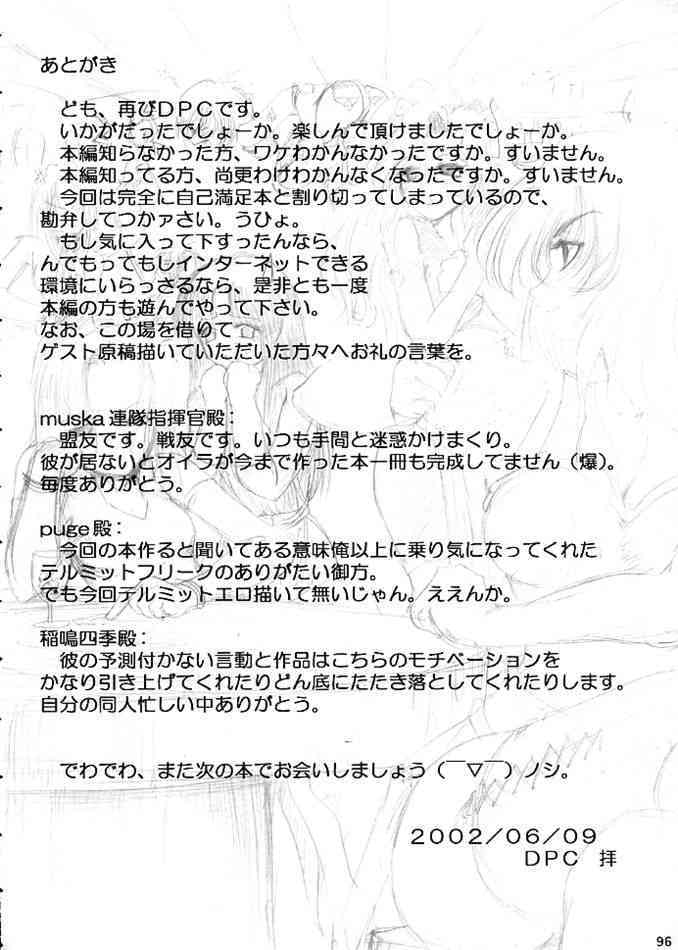 あとがき
ども、再びＤＰＣです。
いかがだったでしょーか。楽しんで頂けましたでしょーか。
本編知らなかった方、ワケわかんなかったですか。すいません。
本編知ってる方、尚更わけわかんなくなったですか。すいません。
今回は完全に自己満足本と割り切ってしまっているので、
勘弁してつかァさい。うひょ。
もし気に入って下すったんなら、
んでもってもしインターネットできる
環境にいらっさるなら、是非とも一度
本編の方も遊んでやって下さい。
なお、この場を借りて
ゲスト原稿描いていただいた方々へお礼の言葉を。
muska連隊指揮官殿：
盟友です。戦友です。いつも手間と迷惑かけまくり。
彼が居ないとオイラが今まで作った本一冊も完成してません（爆）。
毎度ありがとう。
puge殿：
今回の本作ると聞いてある意味俺以上に乗り気になってくれた
テルミットフリークのありがたい御方。
でも今回テルミットエロ描いて無いじゃん。ええんか。
稲鳴四季殿：
彼の予測付かない言動と作品はこちらのモチベーションを
かなり引き上げてくれたりどん底にたたき落としてくれたりします。
自分の同人忙しい中ありがとう。
でわでわ、また次の本でお会いしましょう（￣▽￣）ノシ。
２００２／０６／０９
ＤＰＣ　拝
96